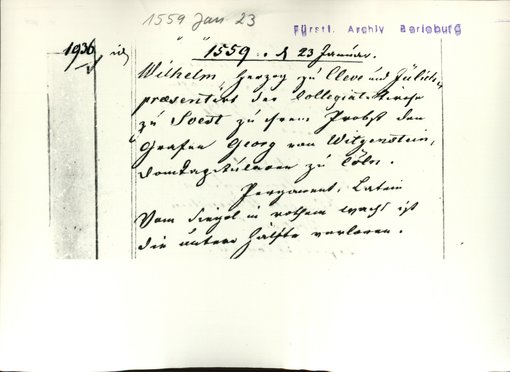 1559 Jan 23
Fürstl. Archiv Berleburg
1936
1559. d 23 Januar.
Wilhelm Herzog zu Cleve und Jülich
præsentirt der Collegiat-Kirche
zu Soest zu ihrem Probst den
Grafen Georg von Witgenstein,
Domkapitularen zu Cöln.
Pergament, Latein
Vom Siegel in rothem Wachs ist
die untere Hälfte verloren.